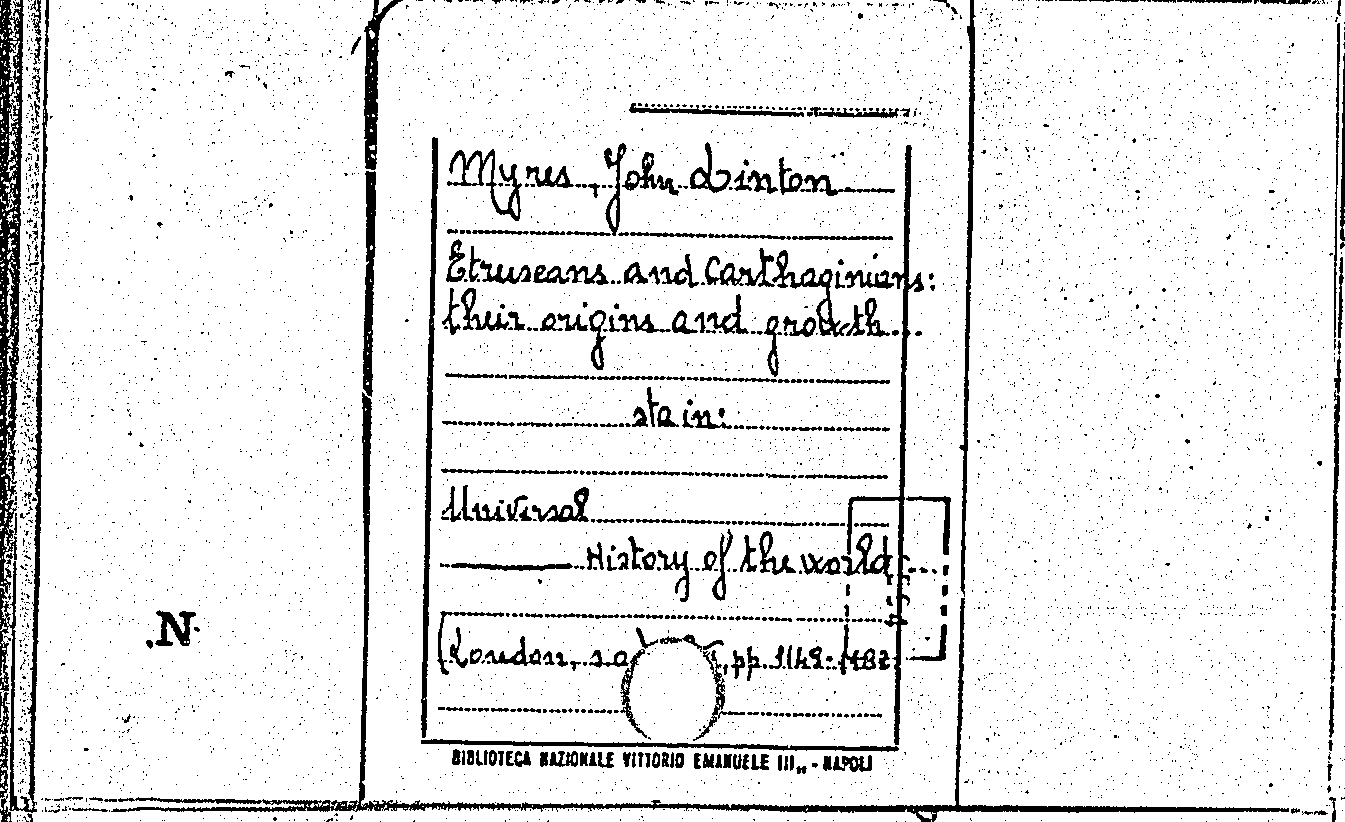 Myres, John Linton
Etruscans and Carthaginians:
their origins and growth...
sta in:
Universal
History of the world...
.N.
(London, s.a. , pp. 1149-1182
BIBLIOTECA NAZIONALE VITTORIO EMANUELE III„ - NAPOLI